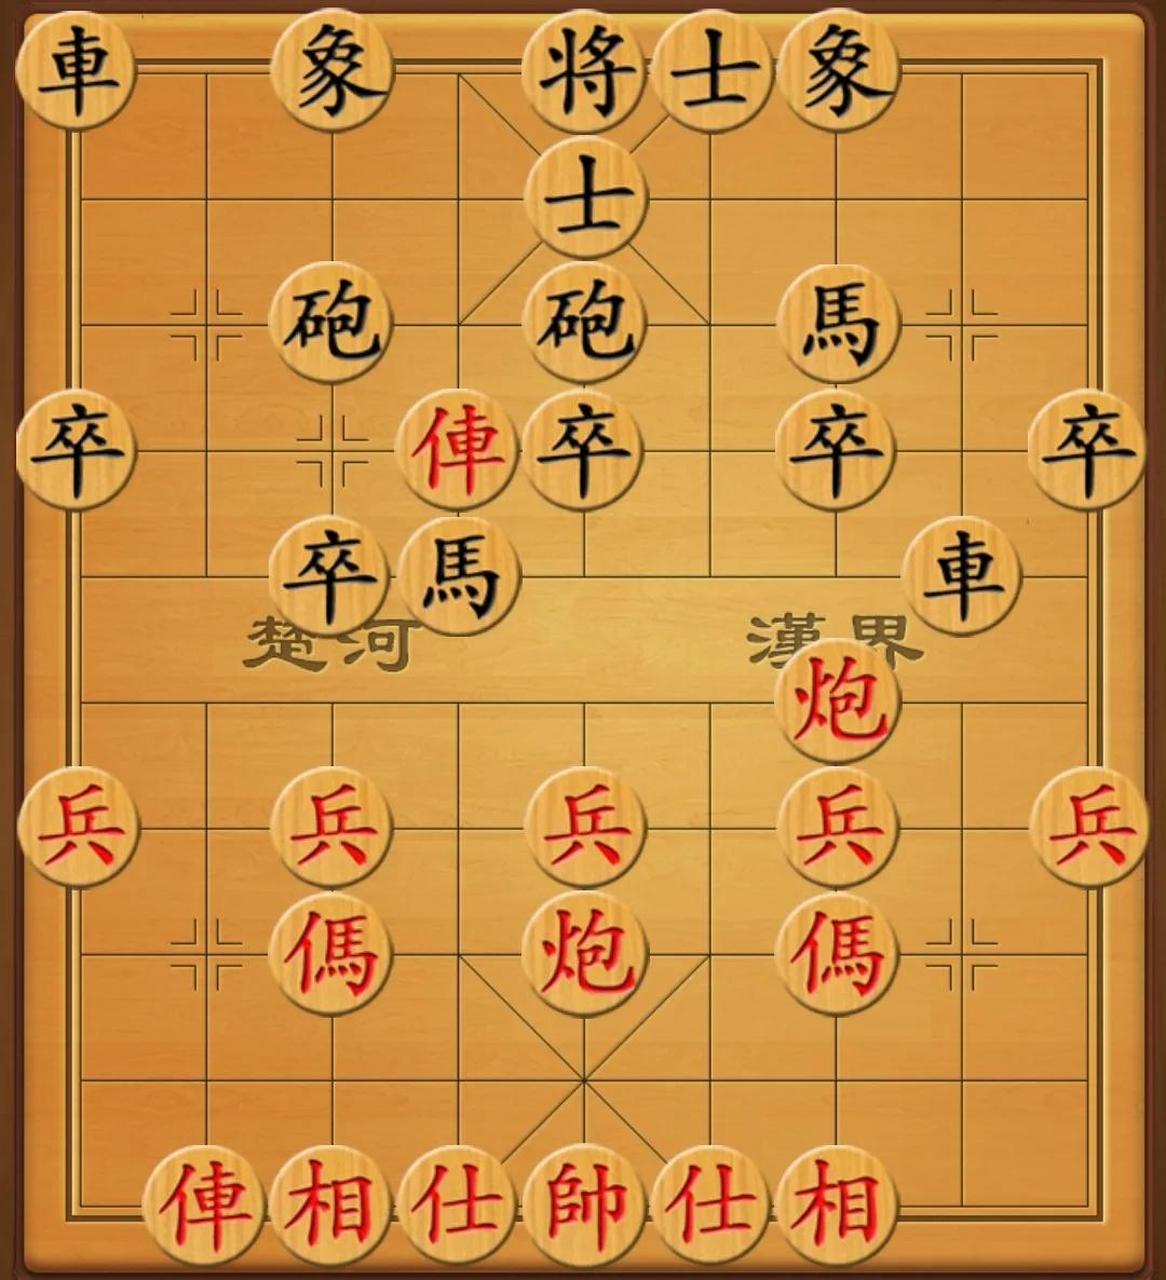 車 象 将 士 象
士
砲 砲 馬
卒 俥 卒 卒 卒
卒 馬 車
楚河 漢界
炮
兵 兵 兵 兵 兵
傌 炮 傌
俥 相 仕 帥 仕 相